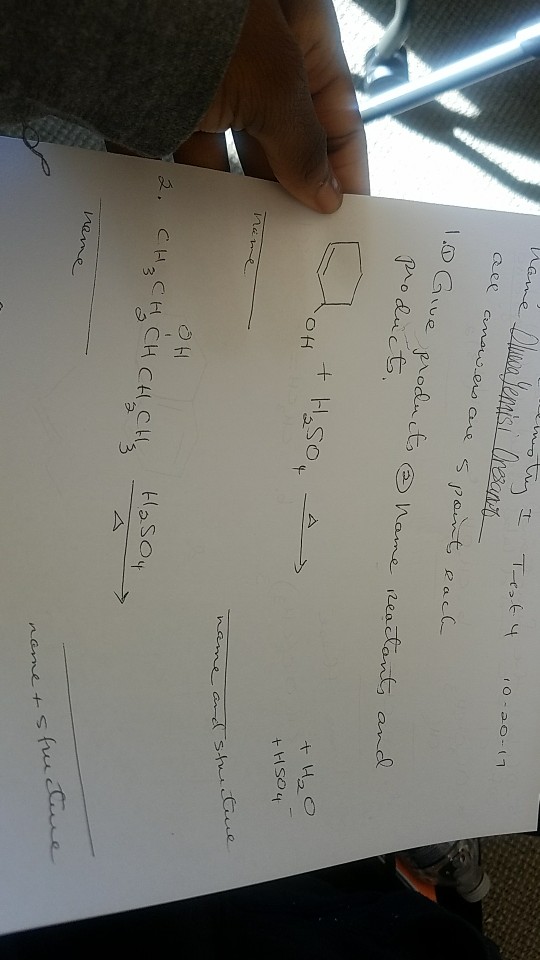 Chemistry I Test 4 10-20-17
Name
all answers are 5 points each
1. ① Give products ② Name reactants and
products.
OH + H₂SO₄ Δ → + H₂O
+ HSO₄⁻
name
name and structure
OH
2. CH₃CH₂CHCH₂CH₃ H₂SO₄ Δ →
name
name + structure